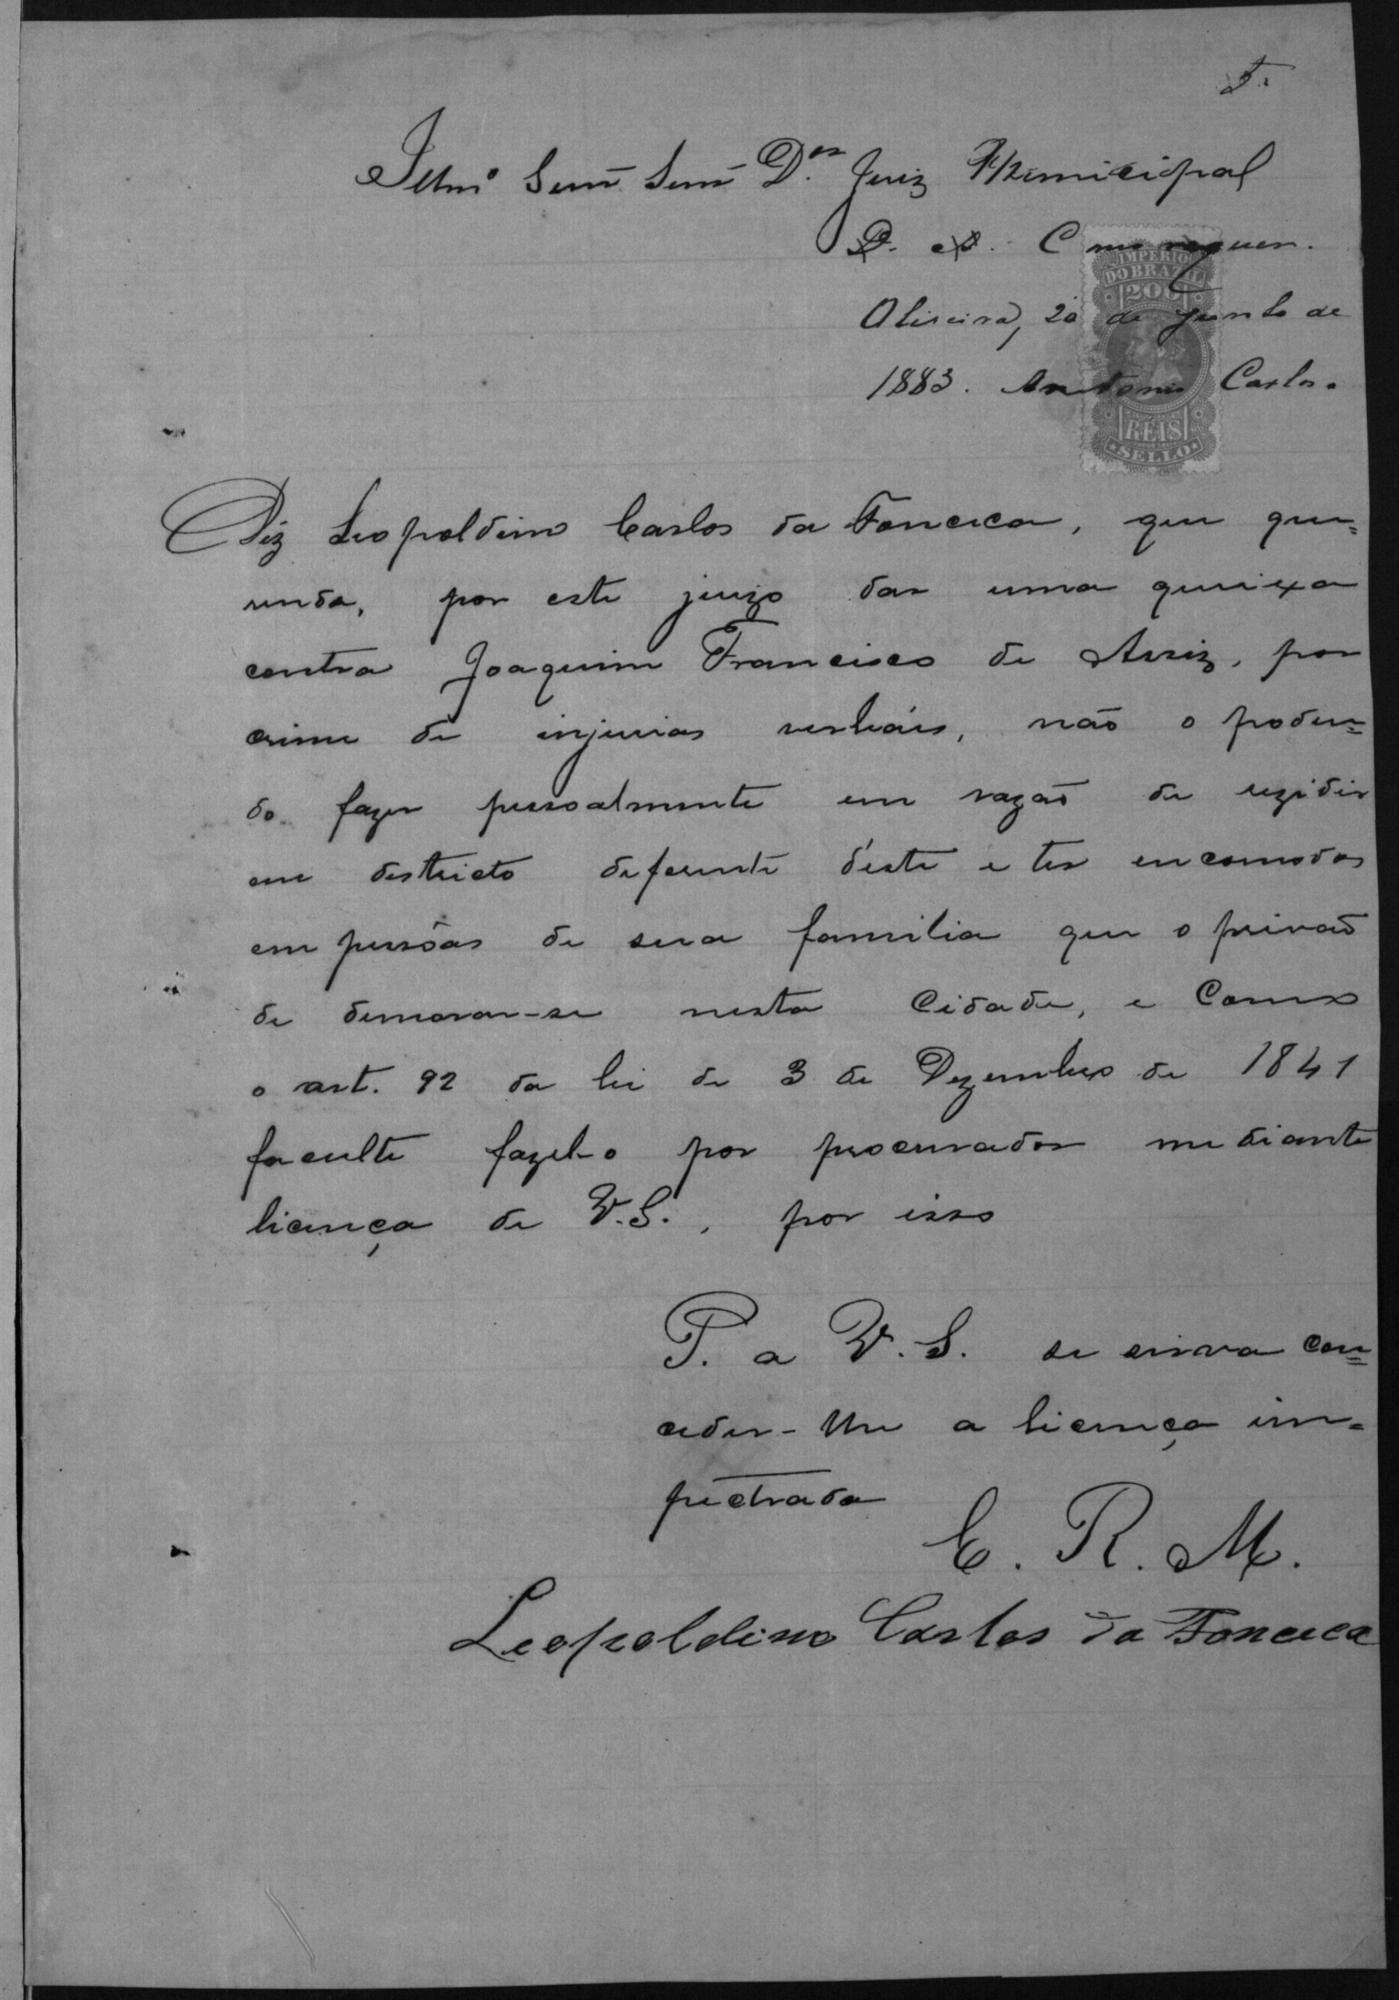 5.
Illmo Senr Senr Dor Juiz Municipal
D. A. Como requer.
Oliveira, 20 de Junho de
1883. Antonio Carlos.
IMPERIO
DO BRAZIL
200
REIS
SELLO
Diz Leopoldino Carlos da Fonceca, que que=
rendo, por este juizo dar uma queixa
contra Joaquim Francisco de Assiz, por
crime de injurias verbáis, não o poden=
do fazer pessoalmente em razão de rezidir
em destricto deferente d'este e ter encomodos
em pessôas de sua familia que o privão
de demorar-se nesta Cidade, e Como
o art. 92 da lei de 3 de Dezembro de 1841
faculte fazel-o por procurador mediante
licença de V.S., por isso
P. a V.S. se sirva con=
ceder-lhe a licença im=
petrada
E. R. M.
Leopoldino Carlos da Fonceca